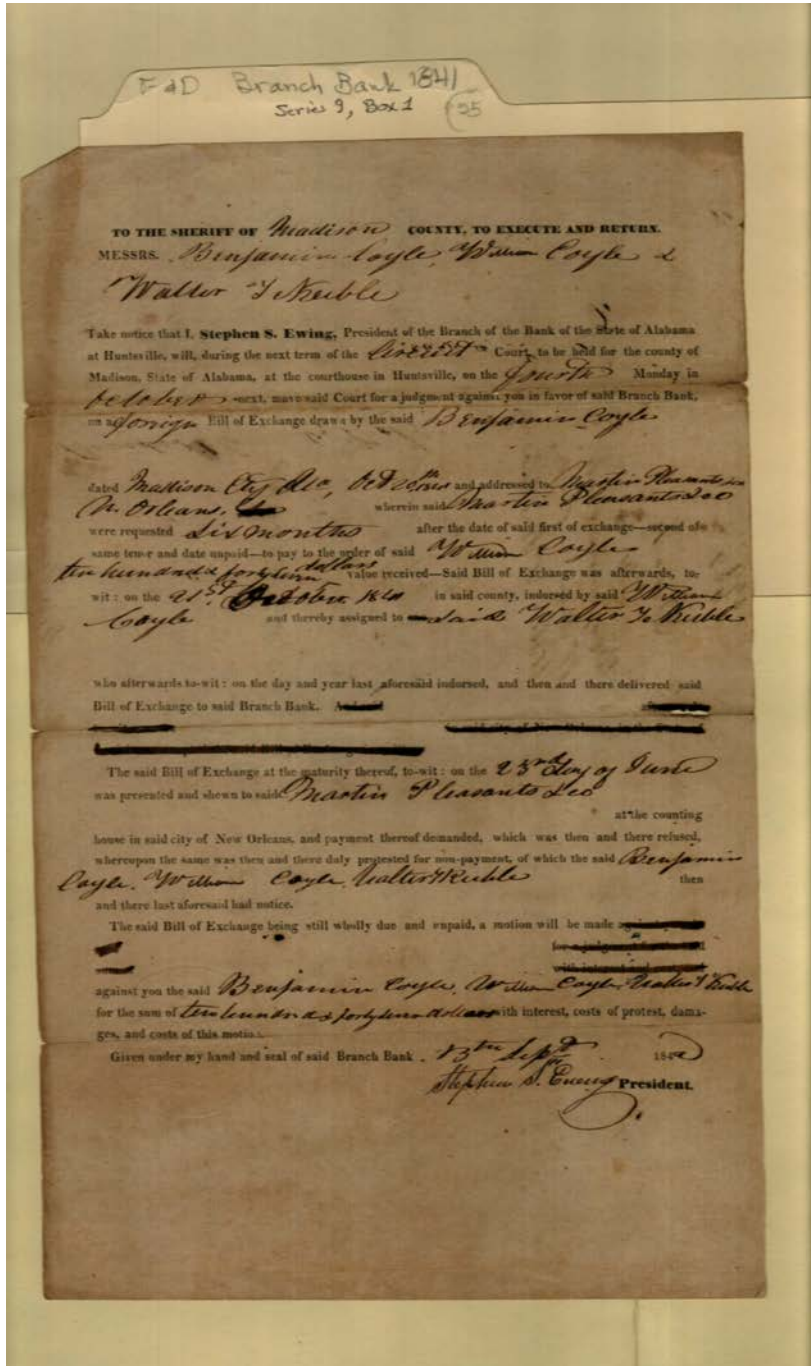 F & D Branch Bank 1841
Series 9, Box 1 25
TO THE SHERIFF OF Madison COUNTY, TO EXECUTE AND RETURN.
MESSRS. Benjamin Coyle, William Coyle &
Walter T Keeble
Take notice that I, Stephen S. Ewing, President of the Branch of the Bank of the State of Alabama
at Huntsville, will, during the next term of the Circuit Court, to be held for the county of
Madison, State of Alabama, at the courthouse in Huntsville, on the fourth Monday in
October next, move said Court for a judgment against you in favor of said Branch Bank,
on a foreign Bill of Exchange drawn by the said Benjamin Coyle
dated Madison and addressed to Martin Pleasants &co
N. Orleans, wherein said Martin Pleasants &co
were requested Six months after the date of said first of exchange—second of
same tenor and date unpaid—to pay to the order of said William Coyle
ten hundred & forty dollars value received—Said Bill of Exchange was afterwards, to-
wit: on the 21st October 1840 in said county, indorsed by said William
Coyle and thereby assigned to said Walter T Keeble
who afterwards to-wit: on the day and year last aforesaid indorsed, and then and there delivered said
Bill of Exchange to said Branch Bank.
The said Bill of Exchange at the maturity thereof, to-wit: on the 23rd day of June
was presented and shewn to said Martin Pleasants &co
at the counting
house in said city of New Orleans, and payment thereof demanded, which was then and there refused,
whereupon the same was then and there duly protested for non-payment, of which the said Benjamin
Coyle, William Coyle, Walter T Keeble then
and there last aforesaid had notice.
The said Bill of Exchange being still wholly due and unpaid, a motion will be made
against you the said Benjamin Coyle, William Coyle, Walter T Keeble
for the sum of ten hundred & forty dollars with interest, costs of protest, dama-
ges, and costs of this motion.
Given under my hand and seal of said Branch Bank. 13th Sept 184
Stephen S. Ewing President.